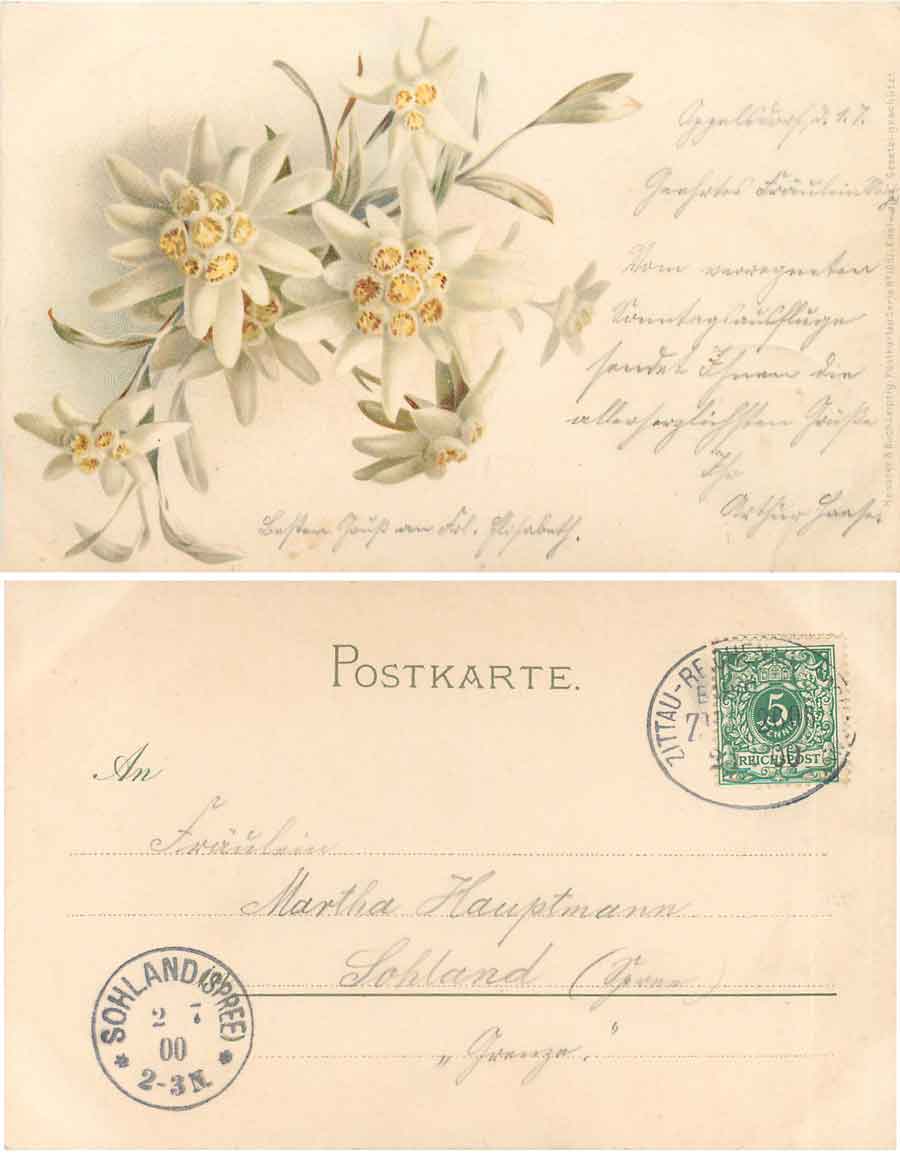 Oppelsdorf, d. 1.7.
Geehrtes Fräulein
Vom verregneten
Sonntagsausfluge
sendet Ihnen die
allerherzlichsten Grüße
Ihr
Arthur Haase.
Besten Gruß an Frl. Elisabeth.
Meissner & Buch, Leipzig, Postkarten Serie Gesetzl. geschützt
POSTKARTE.
ZITTAU-REICHEN
5
PFENNIG
REICHSPOST
An
Fräulein
Martha Hauptmann
Sohland (Spree)
„Grenze."
SOHLAND (SPREE)
2 7
00
2-3 N.